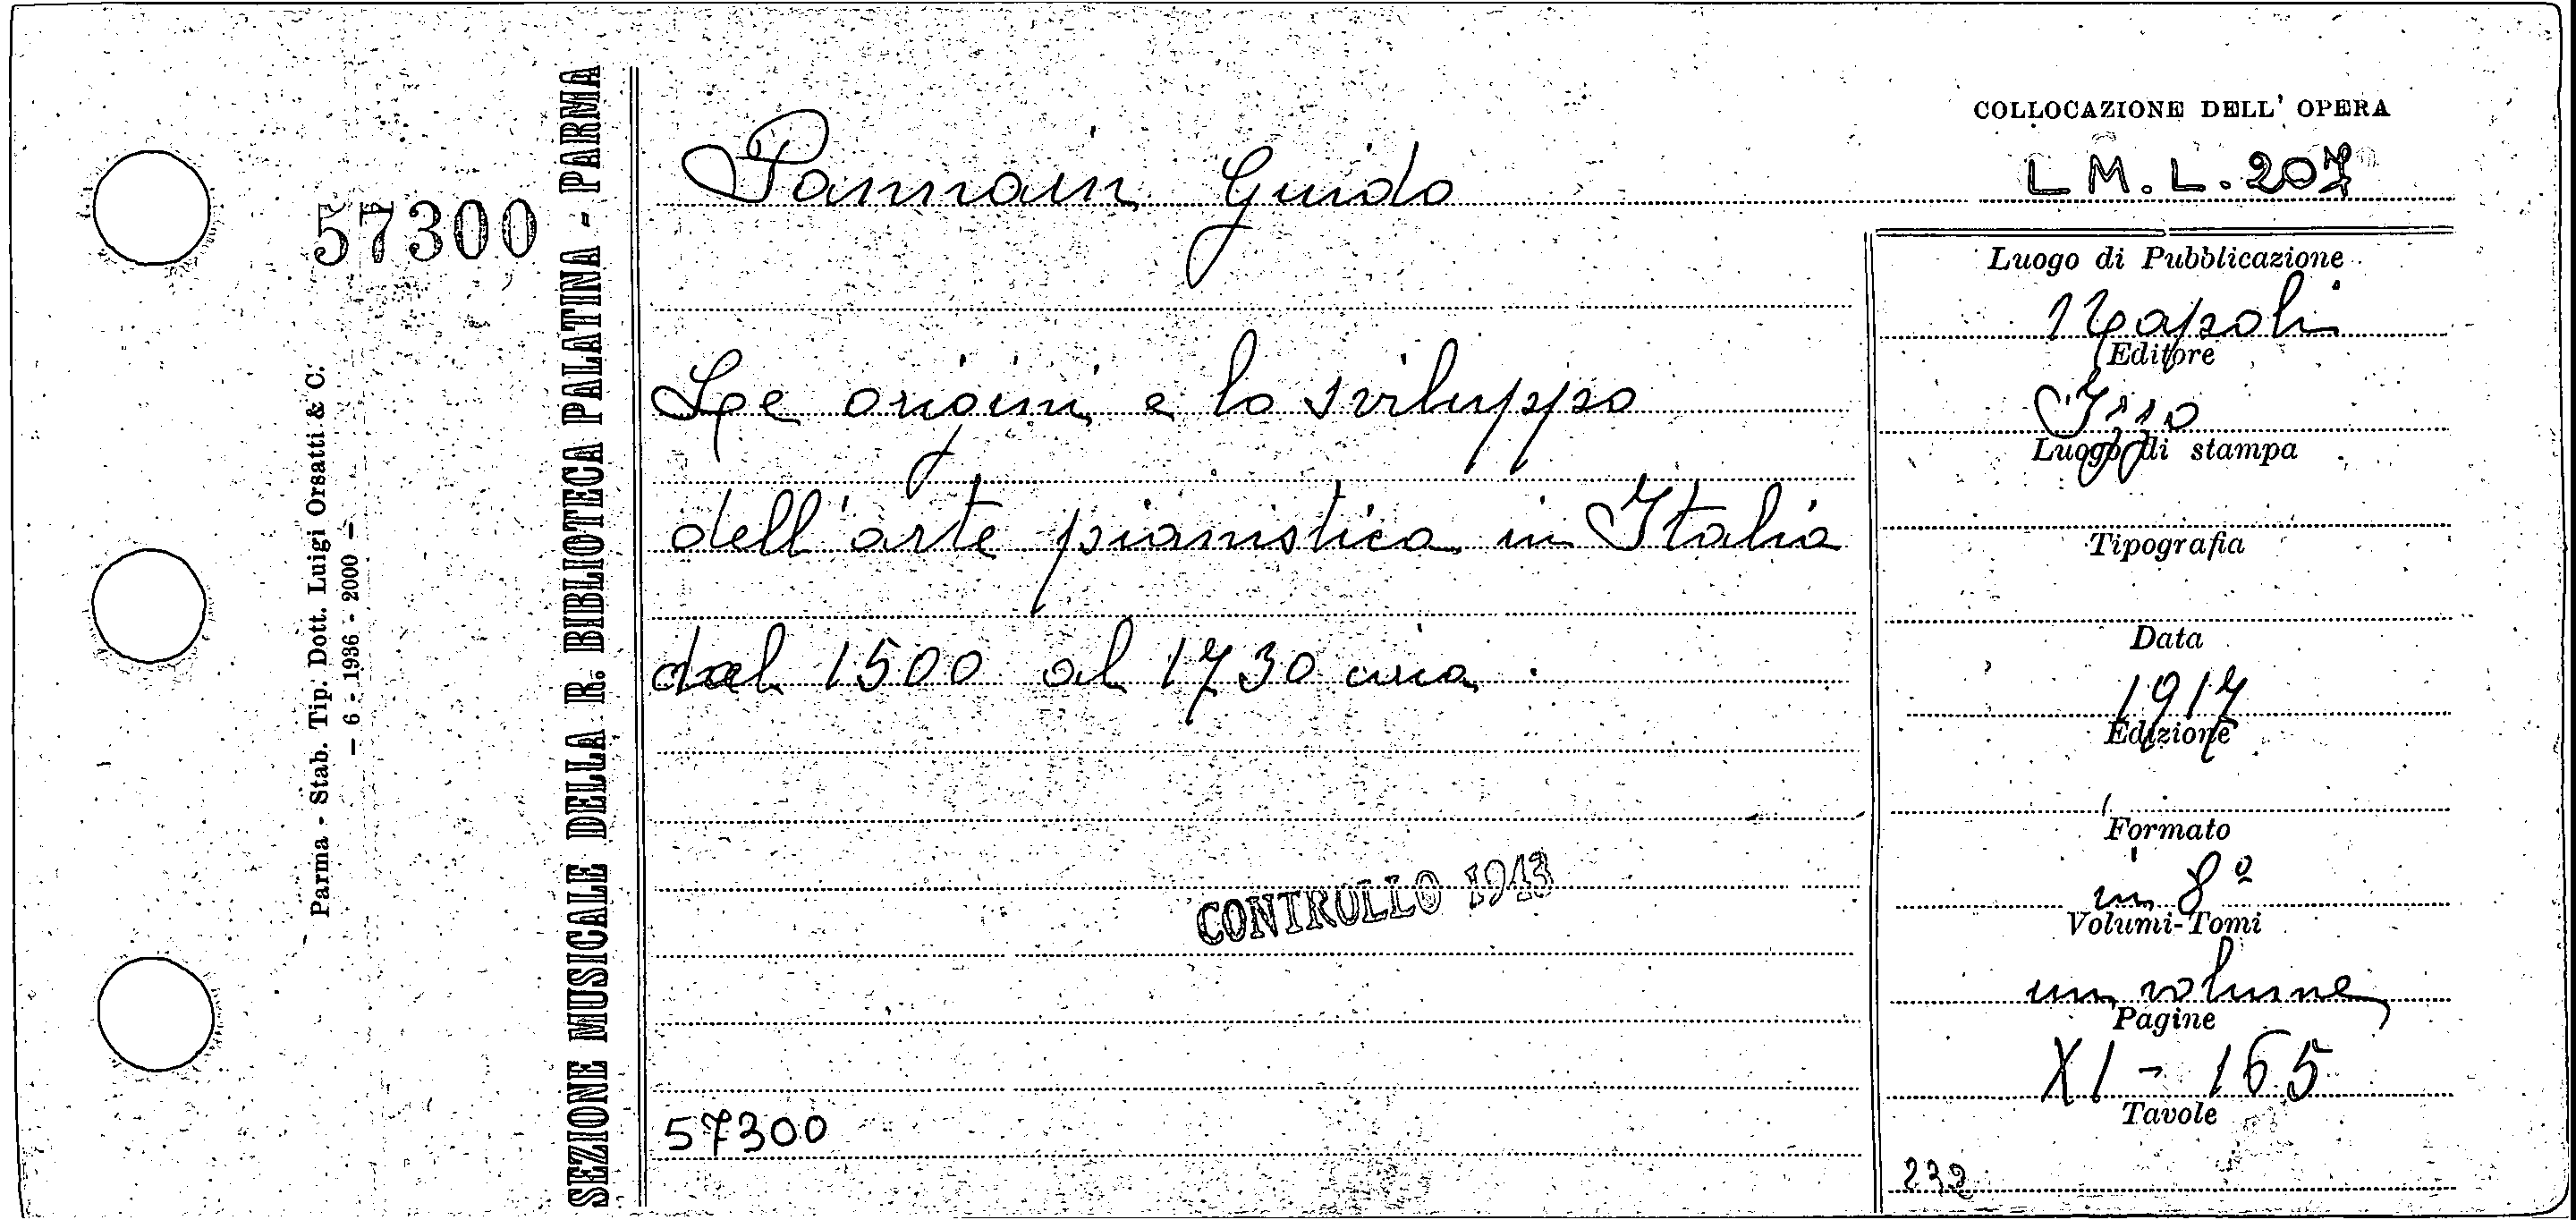 COLLOCAZIONE DELL' OPERA
L M. L. 207
57300
Parma - Stab. Tip. Dott. Luigi Orsatti & C.
— 6 - 1936 - 2000 —
SEZIONE MUSICALE DELLA R. BIBLIOTECA PALATINA - PARMA
Pannain Guido
Le origini e lo sviluppo
dell'arte pianistica in Italia
dal 1500 al 1730 circa.
CONTROLLO 1943
57300
Luogo di Pubblicazione
Napoli
Editore
Izzo
Luogo di stampa
Tipografia
Data
1917
Edizione
Formato
in 8º
Volumi-Tomi
un volume
Pagine
XI - 165
Tavole
232